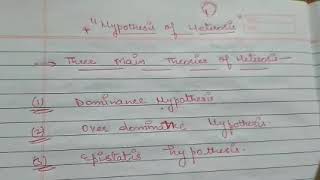 (1)
* "Hypothesis of Heterosis"
→ Three Main Theories of Heterosis —
(1) Dominance Hypothesis.
(2) Over dominance Hypothesis.
(3) Epistatis hypothesis.